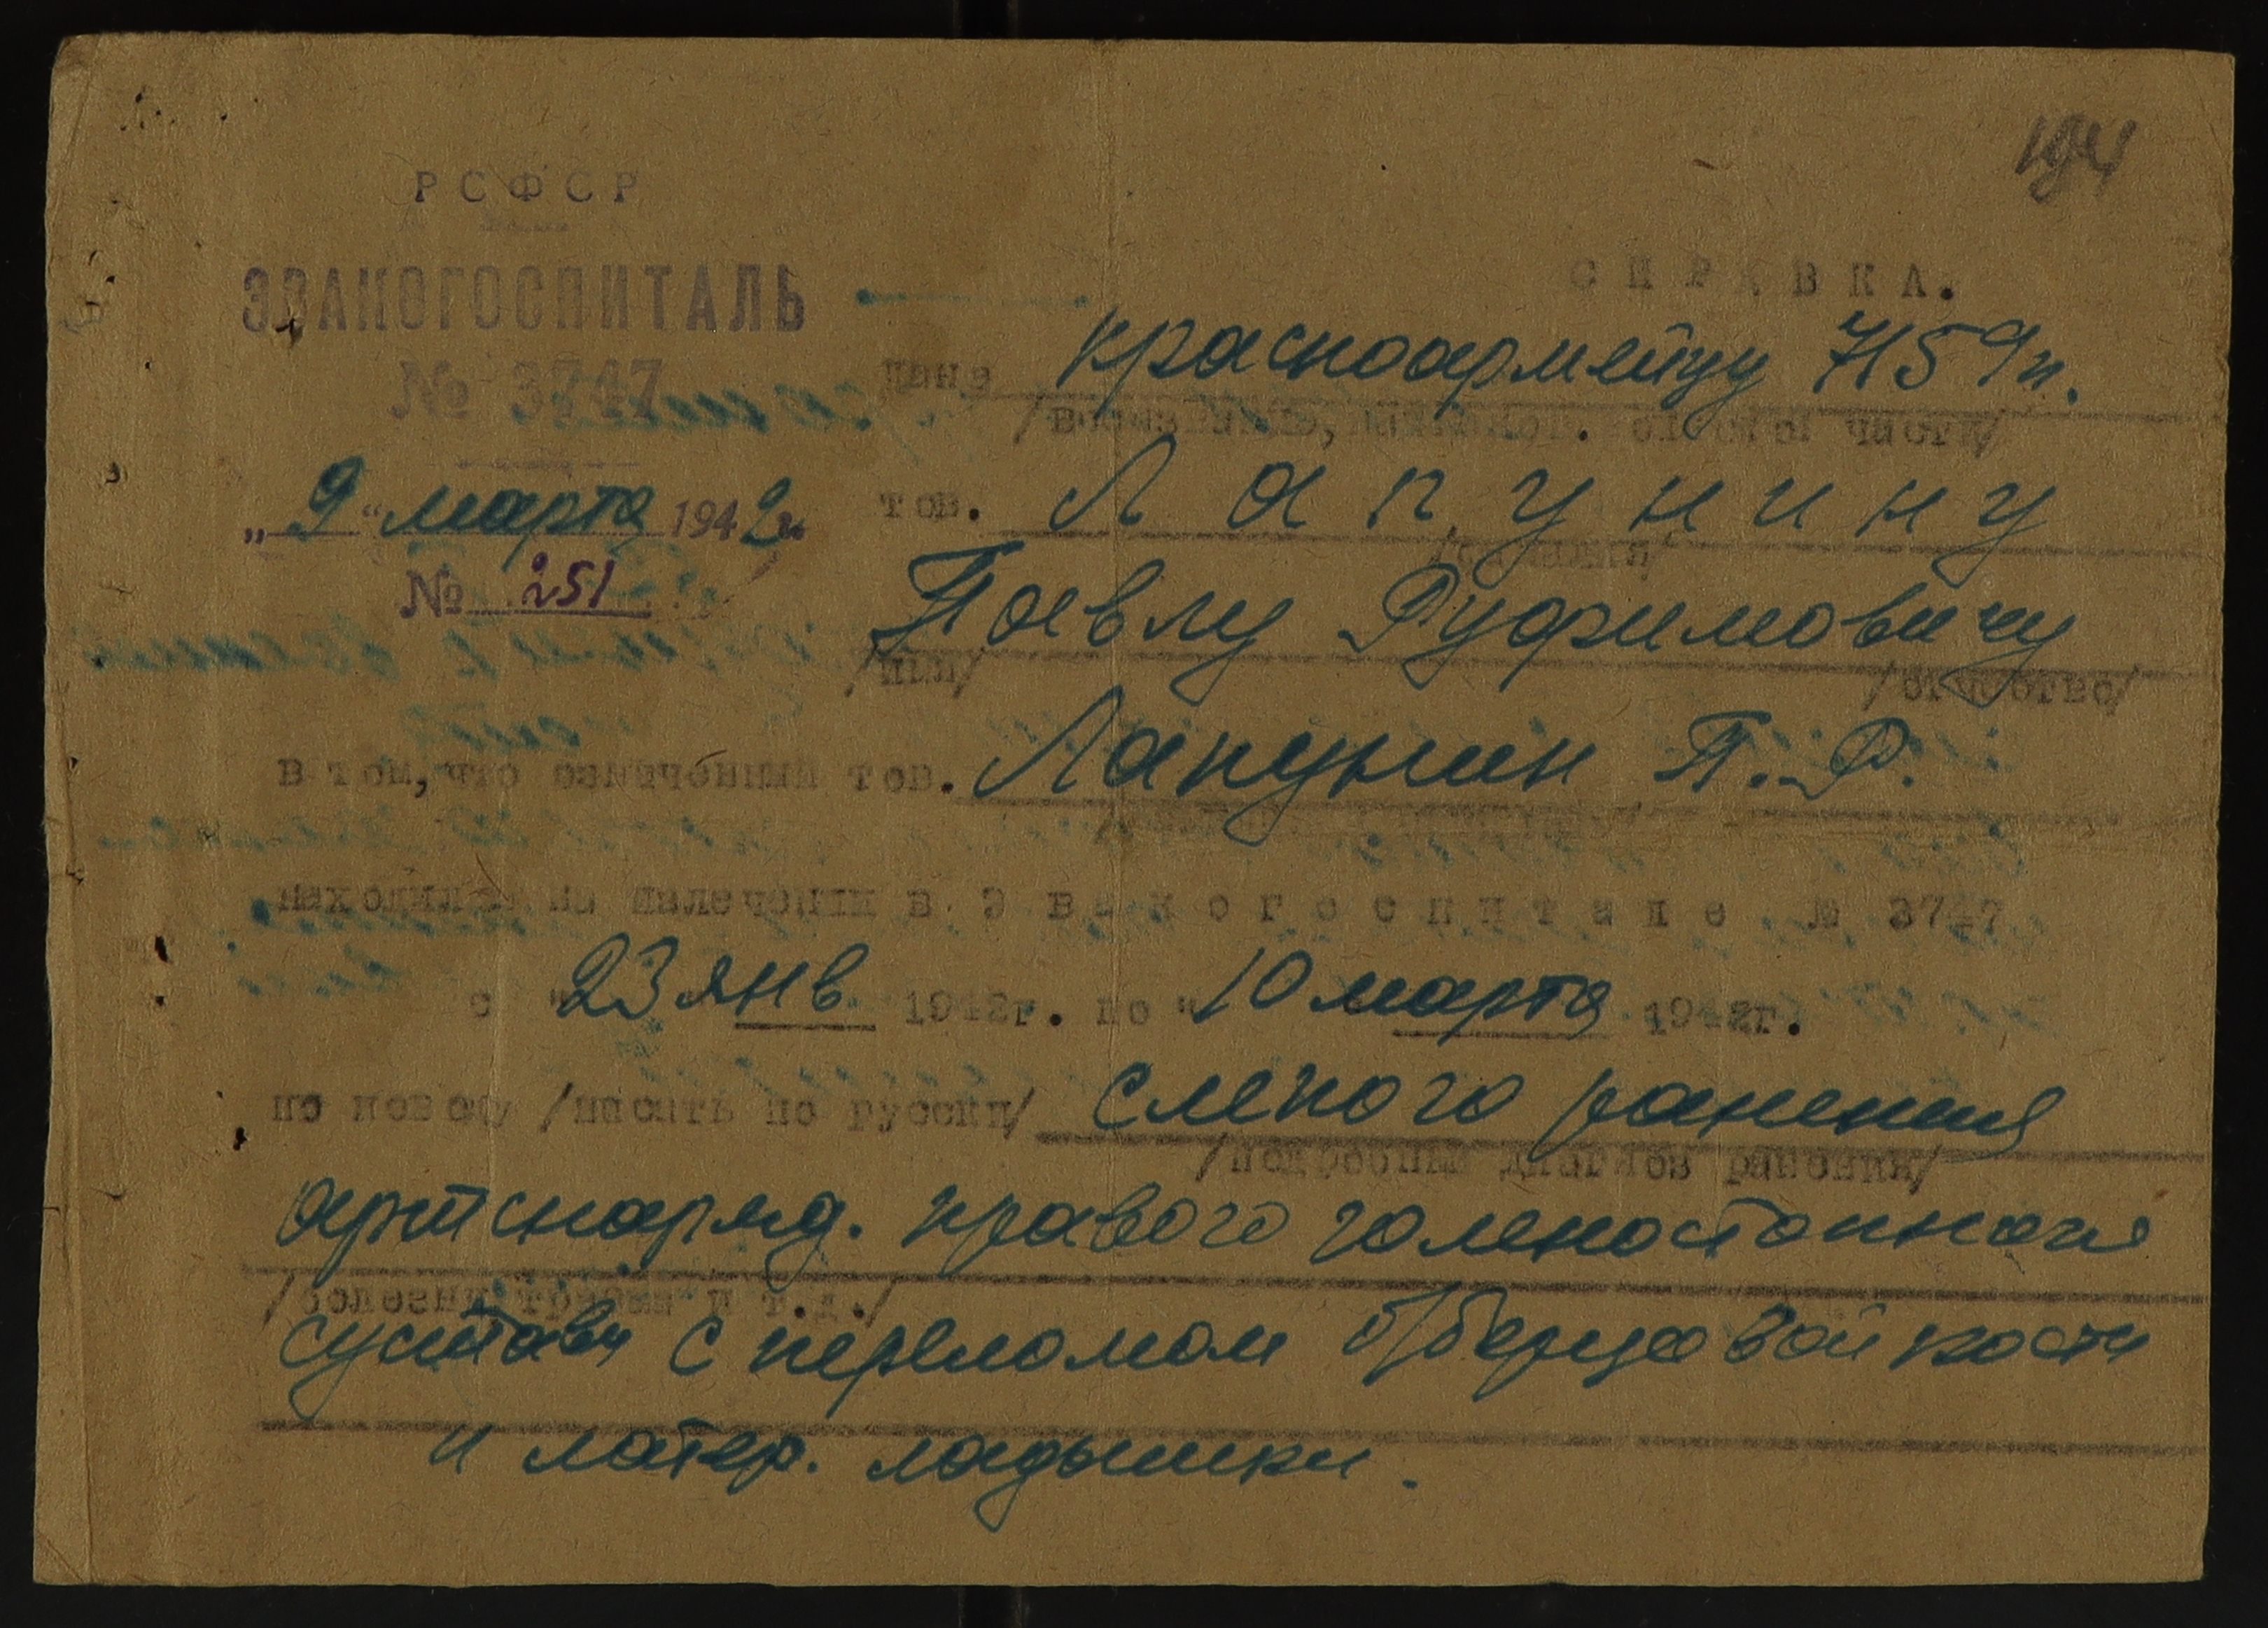 194
РСФСР
ЭВАКОГОСПИТАЛЬ
№ 3747
„9“ марта 1942 г.
№ 251
СПРАВКА.
дана красноармейцу 715 п.
/воензвание, части/
тов. Лапунину
/фамилия/
Павлу Руфимовичу
/имя/ /отчество/
в том, что означенный тов. Лапунин П. Р.
находился на излечении в Эвакогоспитале № 3747
с "23 янв 1942г. по "10 марта 1942г.
по поводу /писать по русски/ слепого ранения
/подробный диагноз ранения/
артснаряд. правого голеностопного
/болезни, травмы и т.д./
сустава с переломом б/берцовой кости
и латер. лодыжки.